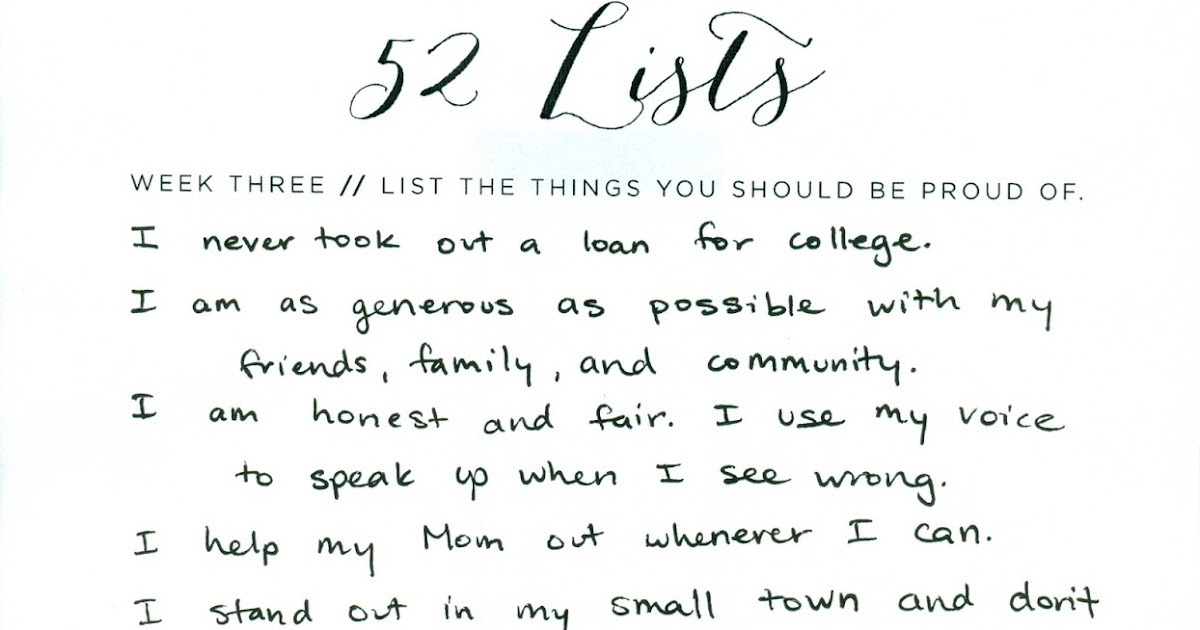 52 Lists
WEEK THREE // LIST THE THINGS YOU SHOULD BE PROUD OF.
I never took out a loan for college.
I am as generous as possible with my
friends, family, and community.
I am honest and fair. I use my voice
to speak up when I see wrong.
I help my Mom out whenever I can.
I stand out in my small town and don't